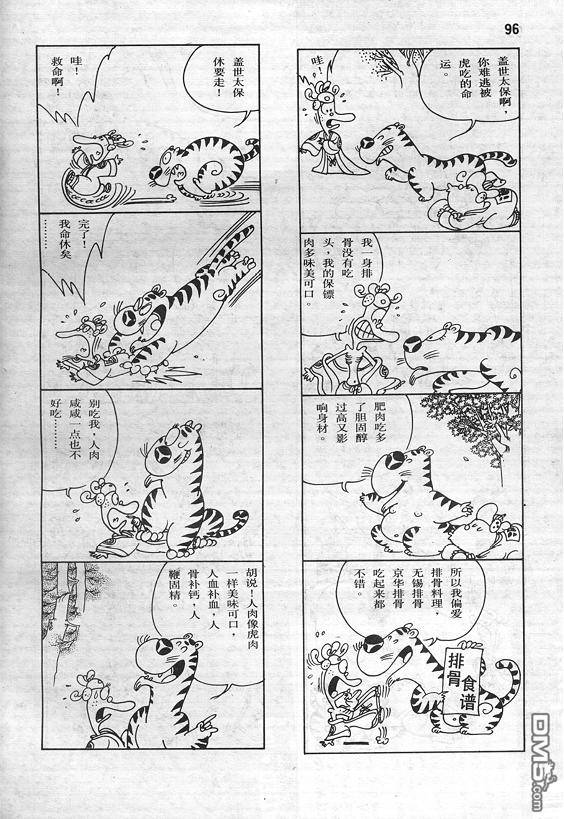 96
盖世太保啊，
你难逃被
虎吃的命
运。
哇！
我一身排
骨没有吃
头，我的保镖
肉多味美可口。
肥肉吃多
了胆固醇
过高又影
响身材。
所以我偏爱
排骨料理，
无锡排骨
京华排骨
吃起来都
不错。
排骨
食谱
盖世太保
休要走！
哇！
救命啊！
完了！
我命休矣
………
别吃我，人肉
咸咸一点也不
好吃………
胡说！人肉像虎肉
一样美味可口，
人血补血，人
骨补钙，人
鞭固精。
DM5.com